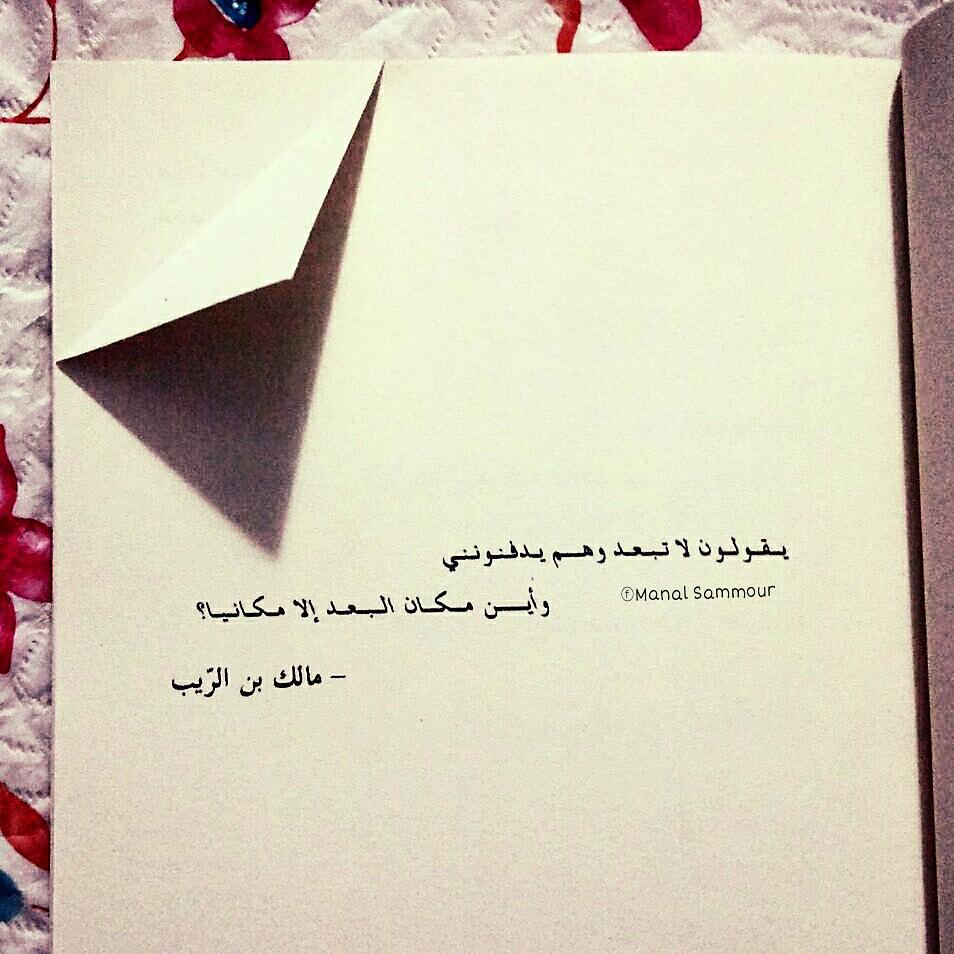 يقولون لا تبعد وهم يدفنونني
ⓕManal Sammour
وأين مكان البعد إلا مكانيا؟
– مالك بن الرّيب